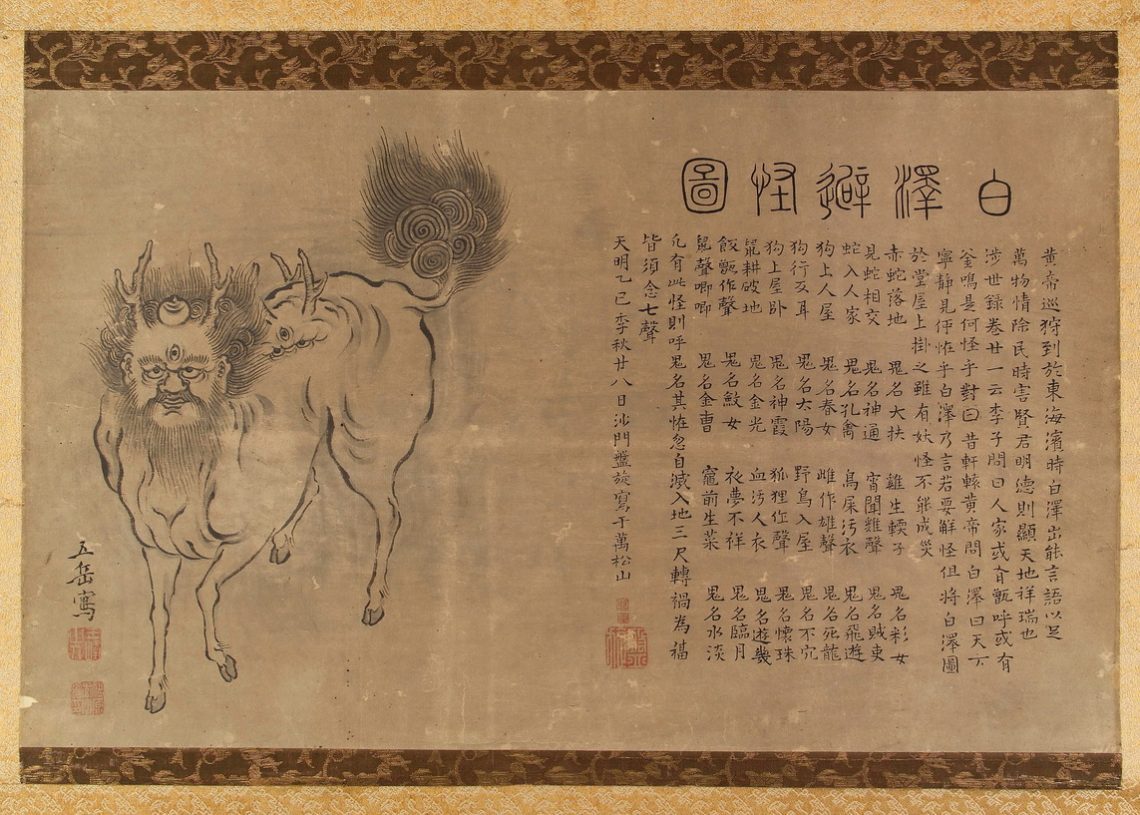 白澤避怪圖
黄帝巡狩到於東海濱時白澤出能言語以足
萬物情除民時害賢君明德則顯天地祥瑞也
涉世録卷廿一云李子問曰人家或有甑呼或有
釜鳴是何怪乎對曰昔軒轅黄帝問白澤曰天下
寧静見何怪乎白澤乃言若要解怪但將白澤圖
於堂屋上掛之雖有妖怪不能成災
赤蛇落地 鬼名大扶 雞生軟子 鬼名彩女
見蛇相交 鬼名神通 宵聞雞聲 鬼名賊吏
蛇入人家 鬼名孔禽 鳥屎汚衣 鬼名飛遊
狗上人屋 鬼名春女 雌作雄聲 鬼名死龍
狗行反耳 鬼名太陽 野鳥入屋 鬼名不宂
狗上屋卧 鬼名神霞 狐狸作聲 鬼名懷珠
鼠耕破地 鬼名金光 血汚人衣 鬼名遊幾
飯甑作聲 鬼名鮫女 衣夢不祥 鬼名臨月
鼠聲唧唧 鬼名金曹 竈前生菜 鬼名水淡
凡有此怪則呼鬼名其怪忽自滅入地三尺轉禍為福
皆須念七聲
天明乙巳季秋廿八日沙門盤旋寫于萬松山
五岳寫